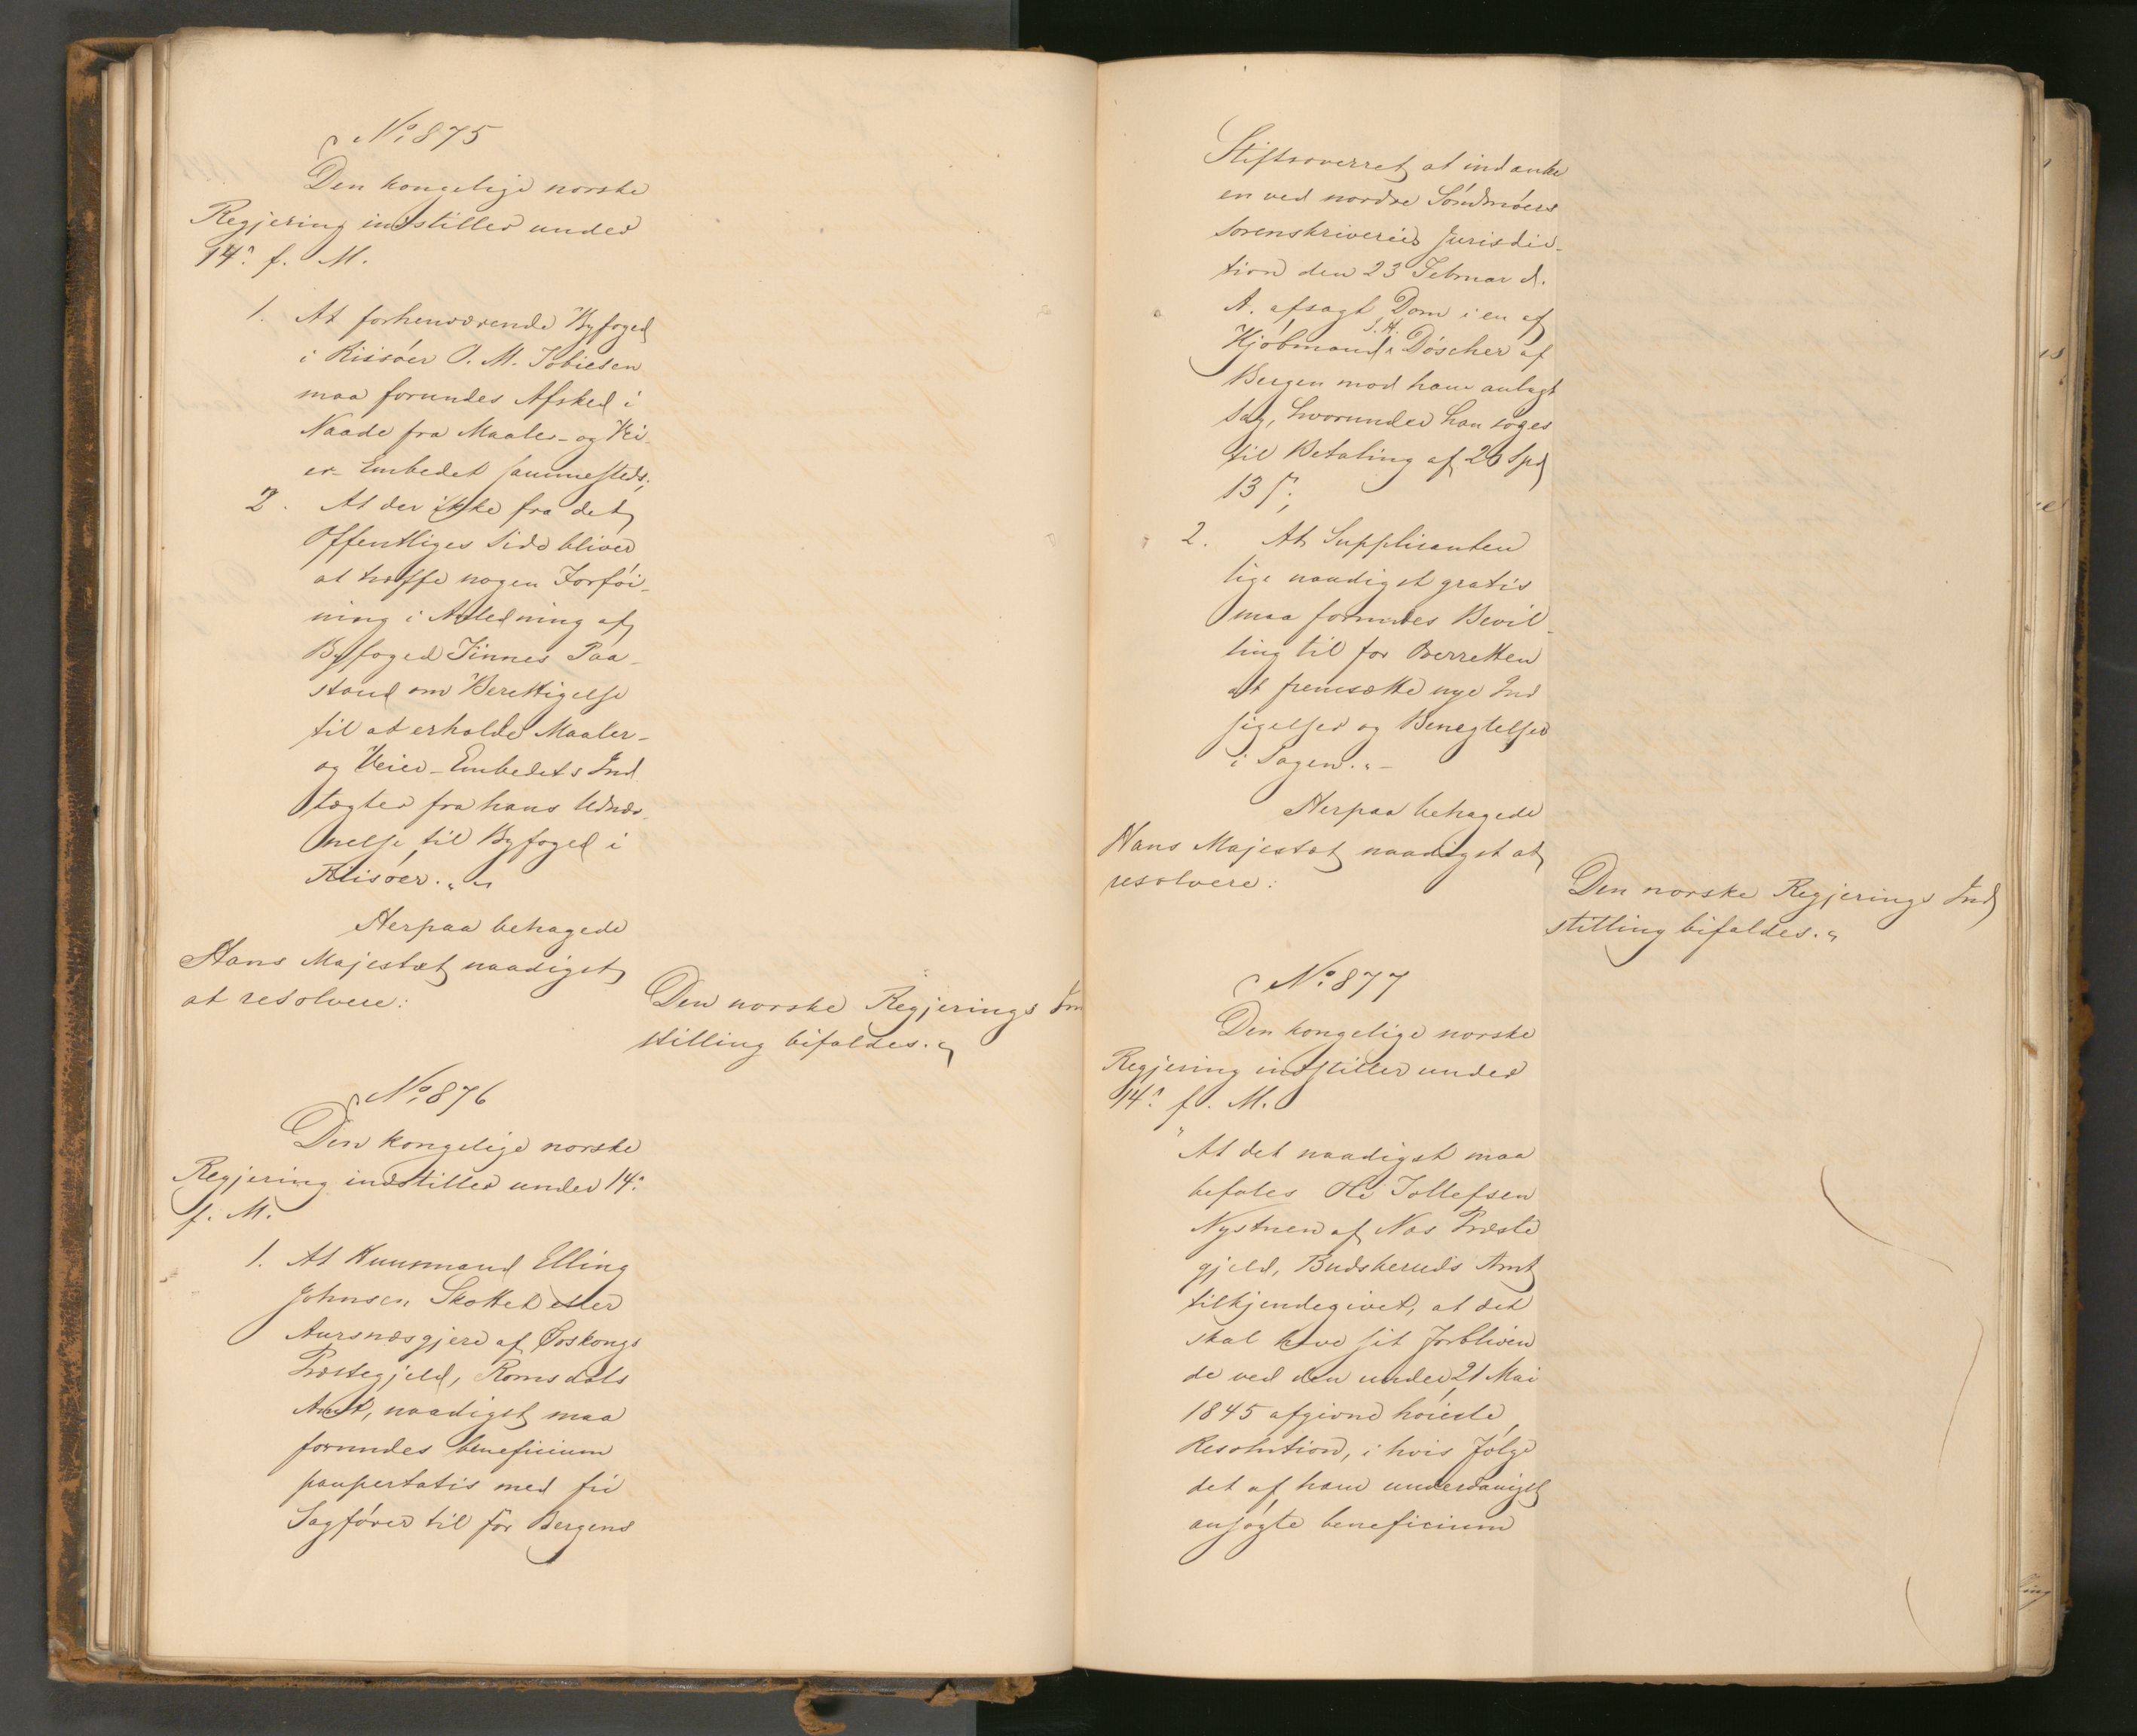 No 875
Den kongelige norske
Regjering indstiller under
14. f. M.
1. At forhenværende Byfoged
i Riisöer O. M. Tobiesen
maa forundes Afsked i
Naade fra Maaler- og Vei-
er-Embedet sammesteds;
2. At der ikke fra det
Offentliges Side bliver
at træffe nogen Forföi-
ning i Anledning af
Byfoged Finnes Paa-
stand om Berettigelse
til at erholde Maaler-
og Veier-Embedets Ind
tægter fra hans Udnæv-
nelse til Byfoged i
Riisöer."
Herpaa behagede
Hans Majestæt naadigst
at resolvere:
Den norske Regjerings In
stilling bifaldes."
No 876
Den kongelige norske
Regjering indstiller under 14.
f. M.
1. At Huusmand Elling
Johnsen Skottet eller
Aursnæsgjere af Örskougs
Præstegjeld, Romsdals
Amt, naadigst maa
forundes beneficium
paupertatis med fri
Sagförer til for Bergens
Stiftsoverret at indanke
en ved nordre Söndmöers
Sorenskriveries Jurisdic-
tion den 23 Februar d.
A. afsagt Dom i en af
Kjöbmand J. H. Döscher af
Bergen mod ham anlagt
Sag, hvorunder han söges
til Betaling af 26 Spd
13 s;
2. At Supplicanten
lige naadigst gratis
maa forundes Bevil-
ling til for Overretten
at fremsætte nye Ind
sigelser og Benegtelser
i Sagen."
Herpaa behagede
Hans Majestæt naadigst at
resolvere:
Den norske Regjerings Ind
stilling bifaldes."
No 877
Den kongelige norske
Regjering indstiller under
14. f. M.
"At det naadigst maa
befales Ole Tollefsen
Nystuen af Næs Præste
gjeld, Budskeruds Amt
tilkjendegivet, at det
skal have sit Forbliven
de ved den under 21 Mai
1845 afgivne höieste
Resolution, i hvis Fölge
det af ham underdanigst
ansögte beneficium